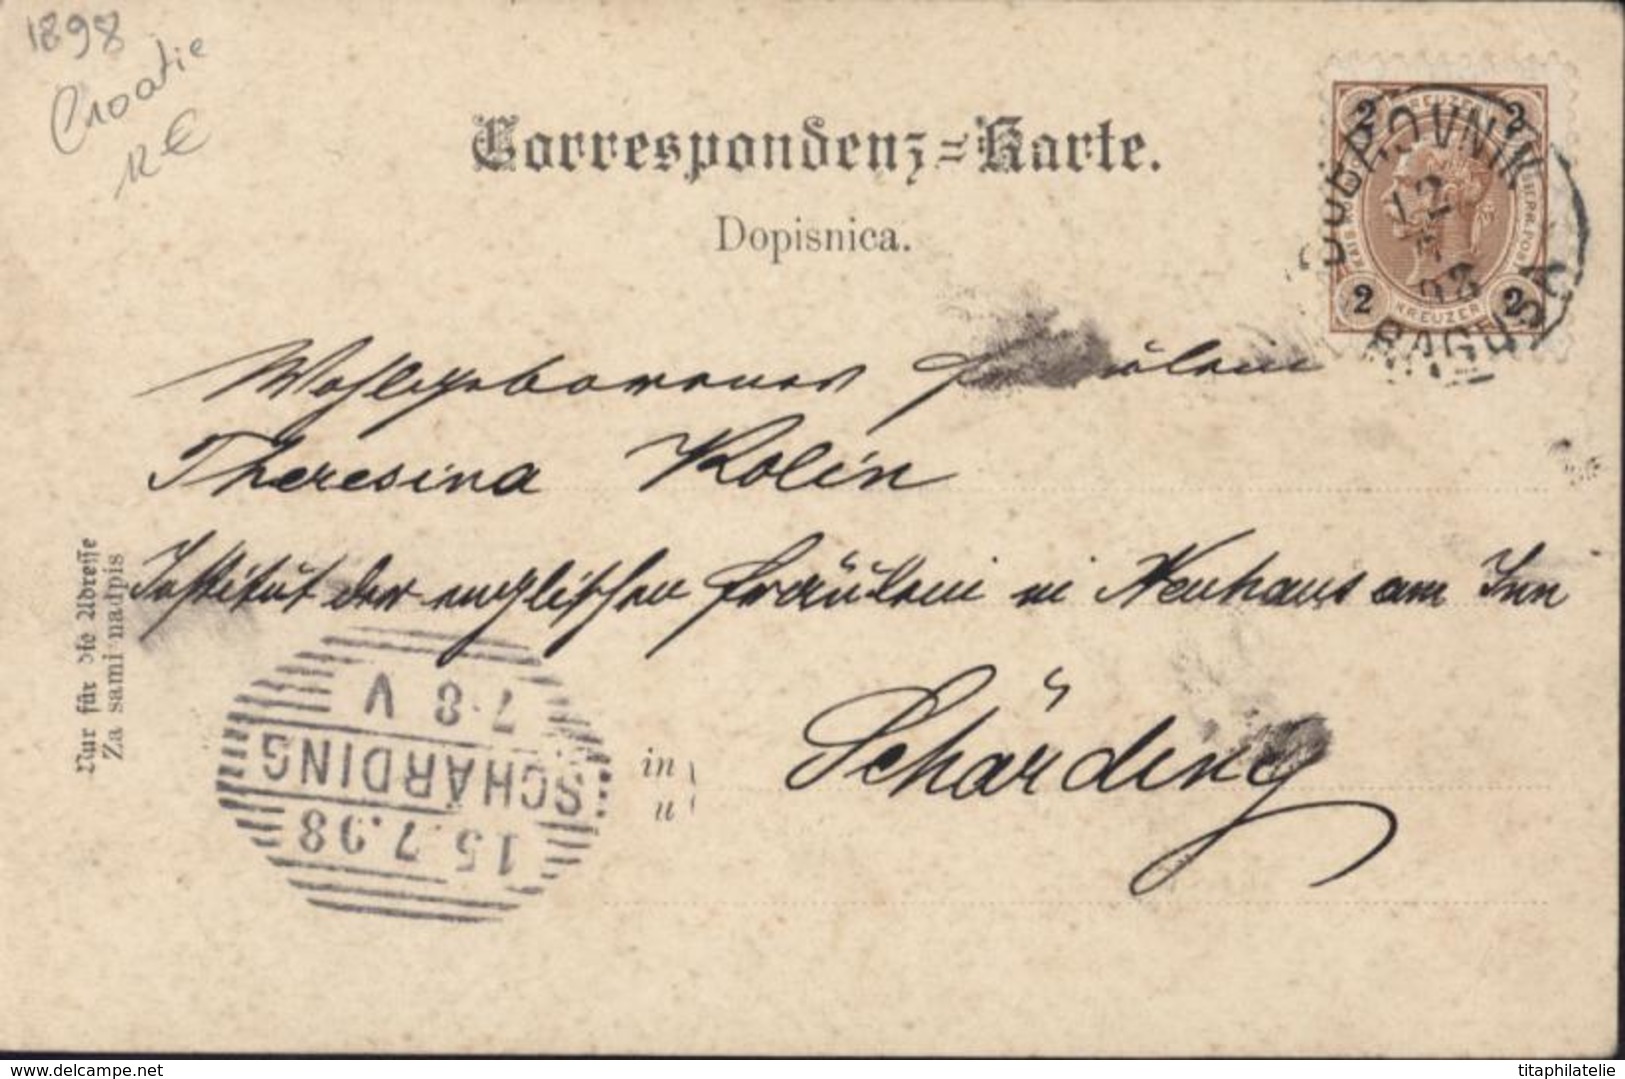 1898
Croatie
12 €
Correspondenz=Karte.
Dopisnica.
2 KREUZER 2
2 KREUZER 2
DUBROVNIK
12
98
RAGUSA
Wohlgeborenes Fräulein
Theresina Kolin
Institut der englischen Fräulein in Neuhaus am Inn
in
u
Schärding
Nur für die Adresse
Za sami nadpis
15.7.98
SCHÄRDING
7-8 V
delcampe.net
titaphilatelie